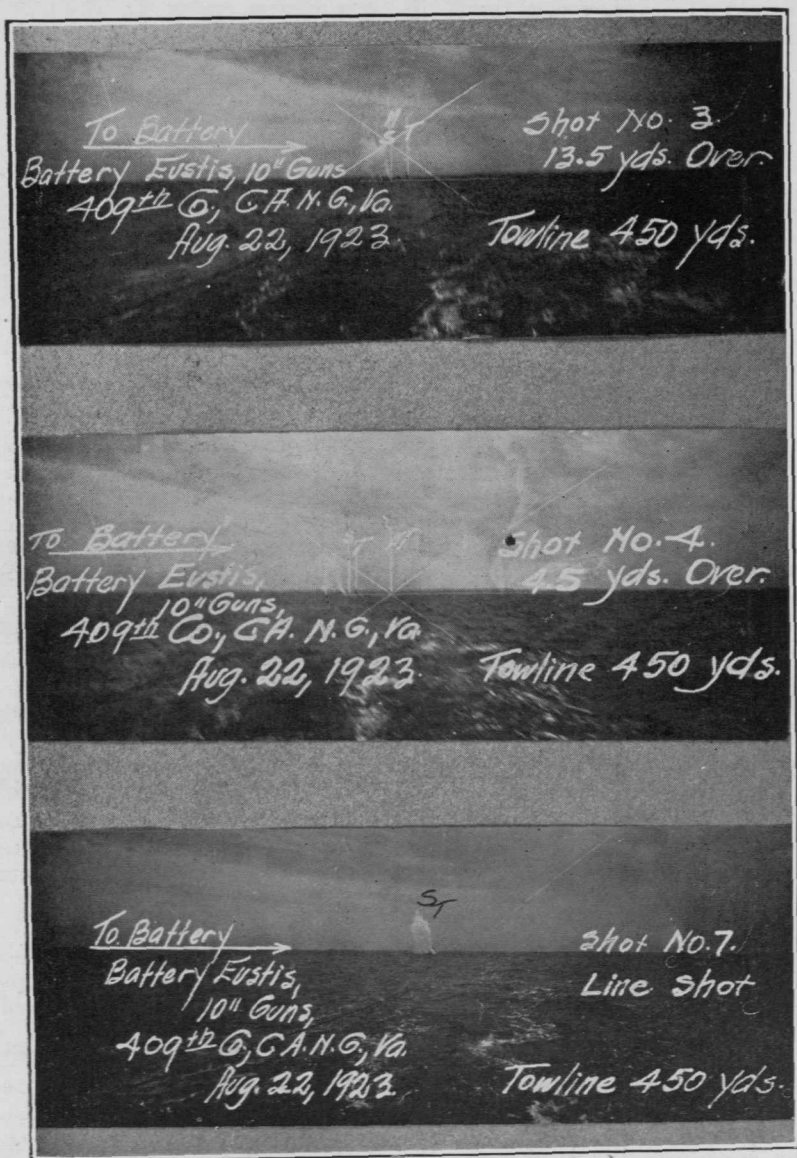 To Battery
Battery Eustis, 10" Guns
409th Co., C.A.N.G., Va.
Aug. 22, 1923
S T
Shot No. 3.
13.5 yds. Over.
Towline 450 yds.
To Battery
Battery Eustis,
10" Guns,
409th Co., C.A. N.G., Va.
Aug. 22, 1923.
Shot No. 4.
45 yds. Over.
Towline 450 yds.
To Battery
Battery Eustis,
10" Guns,
409th Co., C.A.N.G., Va.
Aug. 22, 1923
ST
Shot No. 7.
Line Shot
Towline 450 yds.